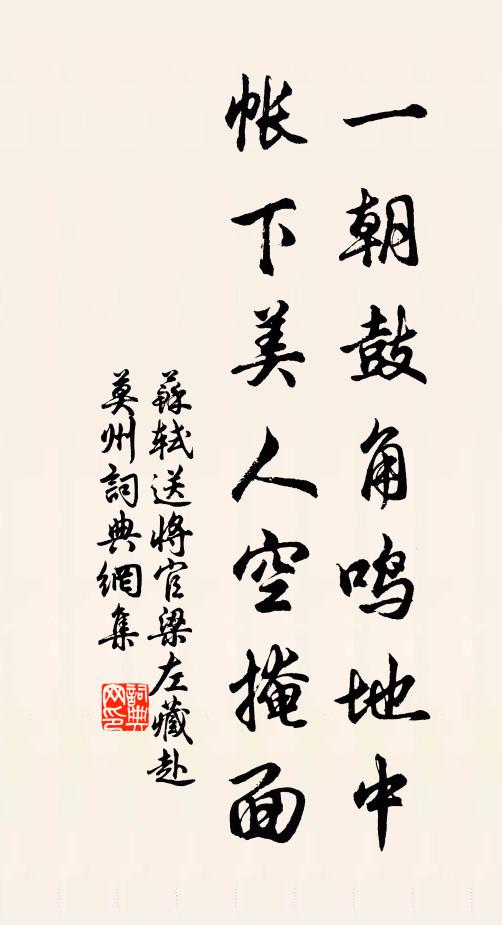 一朝鼓角鸣地中
帐下美人空掩面
蘇軾送將官梁左藏赴
莫州詞典網集
詞典网印